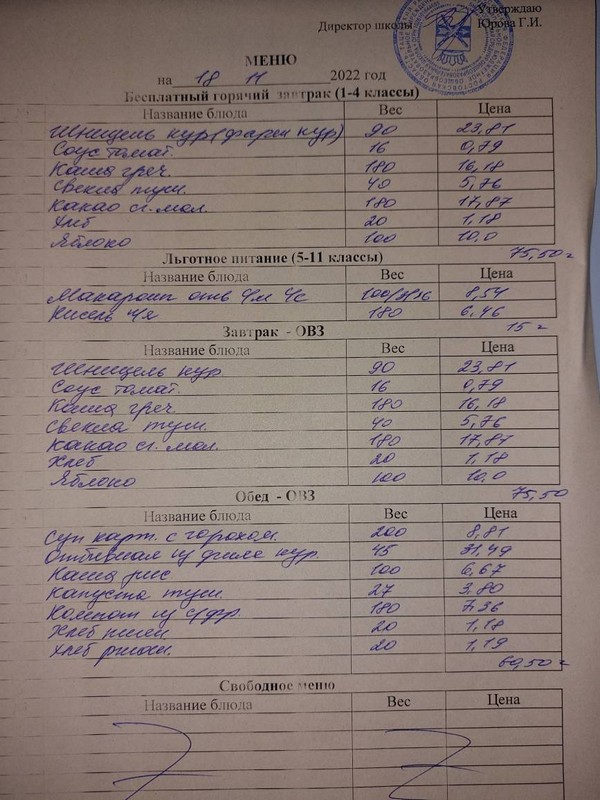 Утверждаю
Директор школы Юрова Г.И.
МЕНЮ
на 18 11 2022 год
Бесплатный горячий завтрак (1-4 классы)
Название блюда Вес Цена
Шницель кур (фарш кур) 90 23,81
Соус томат. 16 0,79
Каша греч. 180 16,18
Свекла туш. 40 5,76
Какао сг. мол. 180 17,87
Хлеб 20 1,18
Яблоко 100 10,0
75,50
Льготное питание (5-11 классы)
Название блюда Вес Цена
Макароны отв 8,54
Кисель 180 6,46
15
Завтрак - ОВЗ
Название блюда Вес Цена
Шницель кур 90 23,81
Соус томат. 16 0,79
Каша греч 180 16,18
Свекла туш. 40 5,76
Какао сг. мол. 180 17,87
Хлеб 20 1,18
Яблоко 100 10,0
75,50
Обед - ОВЗ
Название блюда Вес Цена
Суп карт. с горохом. 200 8,81
Отбивная из филе кур. 45 31,49
Каша рис 100 6,67
Капуста туш. 27 3,80
Компот из с/фр. 180 7,36
Хлеб пшен. 20 1,18
Хлеб ржан. 20 1,19
60,50
Свободное меню
Название блюда Вес Цена